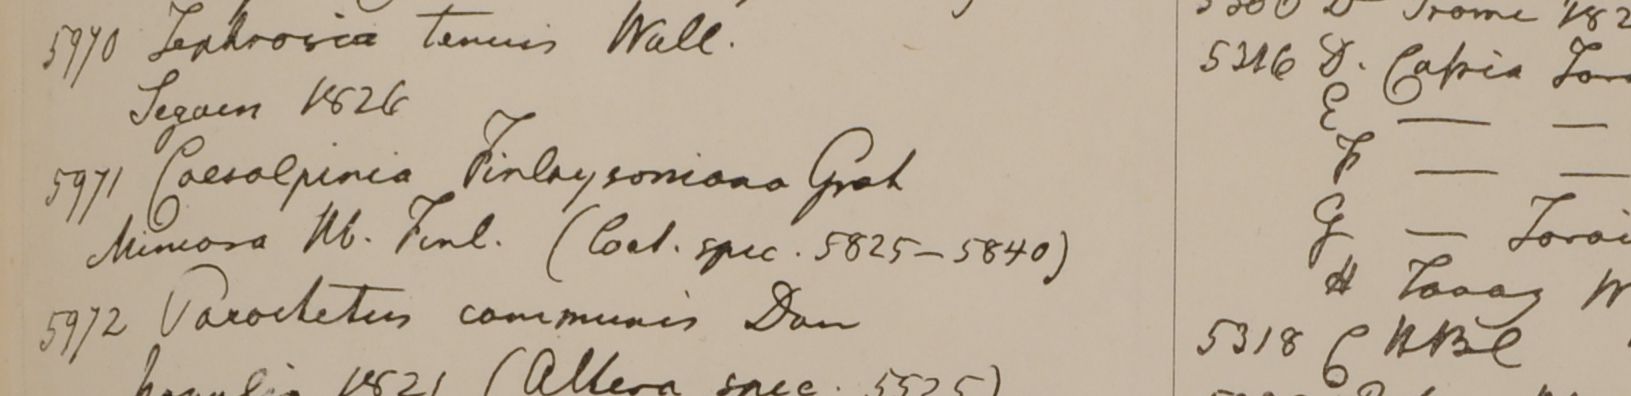 5970 Tephrosia tenuis Wall.
Segaen 1826
5971 Caesalpinia Finlaysoniana Grah
Mimosa Hb. Finl. (Cat. spec. 5825–5840)
5972 Parochetus communis Don
1821 (Altera spec. 5525)
5300 D Prome 182
5316 D. Capia
E — —
F — —
G —
H Taong
5318 C HBC